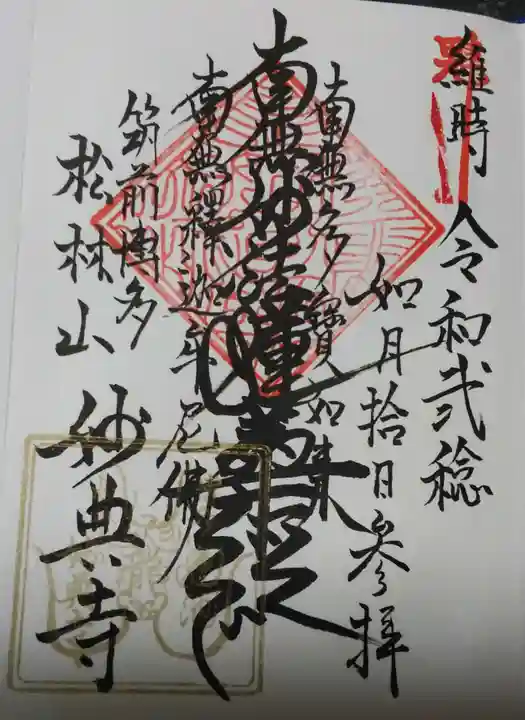 維時 令和弐稔
如月拾日参拝
南無多寳如来
南無妙法蓮華経
南無釋迦牟尼佛
筑前博多
松林山 妙典寺